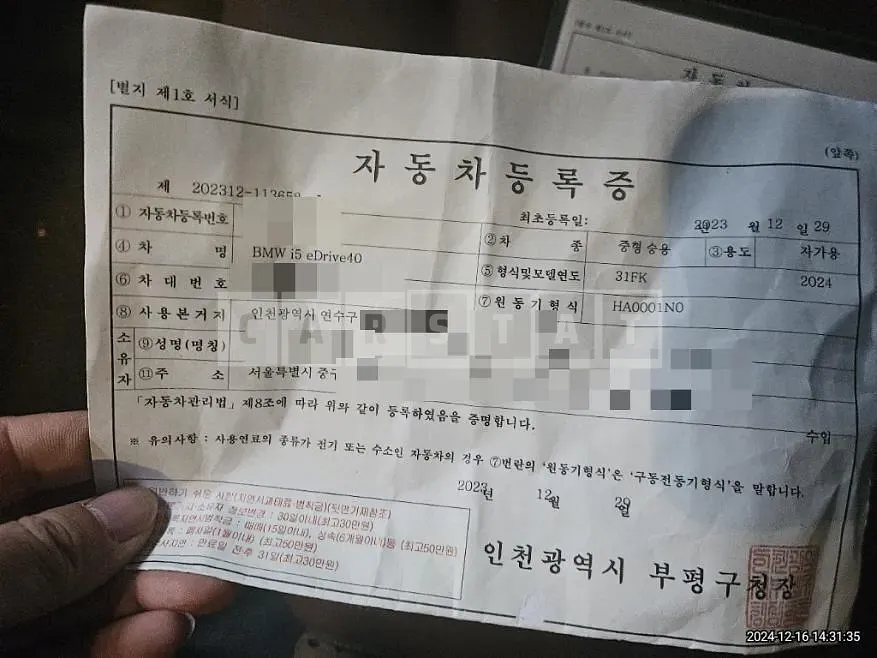 [별지 제1호 서식]
(앞쪽)
자동차등록증
제 202312-113658
최초등록일: 2023년 12월 29일
① 자동차등록번호
② 차 종 중형 승용 ③ 용도 자가용
④ 차 명 BMW i5 eDrive40
⑤ 형식및모델연도 31FK 2024
⑥ 차대번호
⑦ 원동기형식 HA0001N0
⑧ 사용본거지 인천광역시 연수구
소유자
⑨ 성명(명칭)
⑪ 주 소 서울특별시 중구
「자동차관리법」 제8조에 따라 위와 같이 등록하였음을 증명합니다.
수입
※ 유의사항 : 사용연료의 종류가 전기 또는 수소인 자동차의 경우 ⑦번란의 '원동기형식'은 '구동전동기형식'을 말합니다.
2023년 12월 29일
쉬운 사항(지연시과태료·범칙금)(뒷면기재참조)
변경 : 30일이내(최고30만원)
: 매매(15일이내), 상속(6개월이내)등 (최고50만원)
(1월이내) (최고50만원)
: 만료일 전후 31일(최고30만원)
인천광역시 부평구청장
CARSTAT
2024-12-16 14:31:35